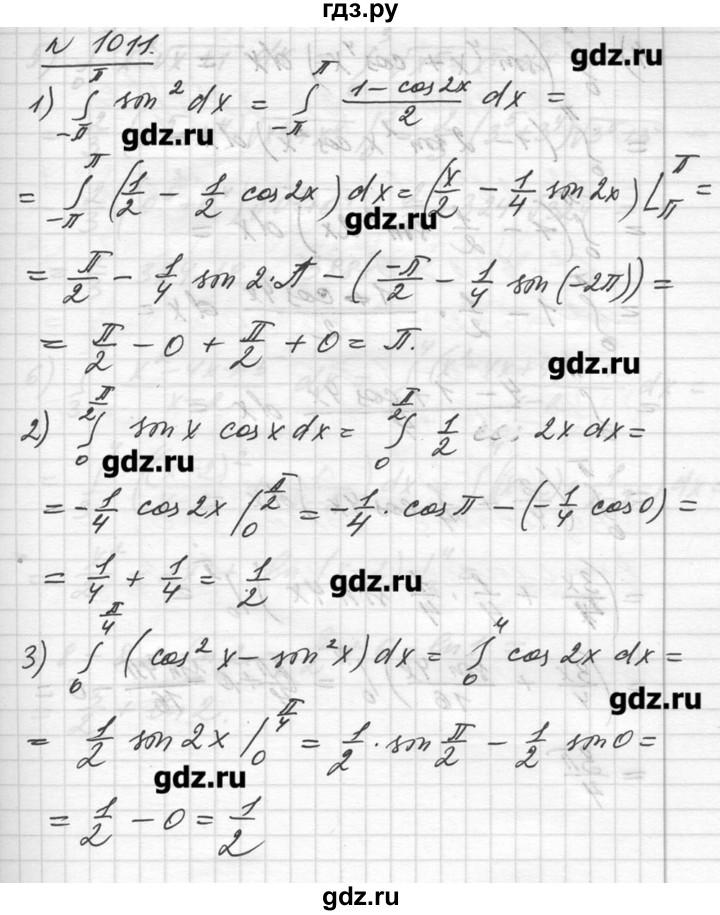 гдз.ру
N 1011.
gdz.ru
1) ∫_{-π}^{π} sin² dx = ∫_{-π}^{π} (1 - cos2x)/2 dx =
gdz.ru
= ∫_{-π}^{π} (1/2 - 1/2 cos2x) dx = (x/2 - 1/4 sin 2x) |_{π}^{π} =
gdz.ru
= π/2 - 1/4 sin 2·π - (-π/2 - 1/4 sin(-2π)) =
= π/2 - 0 + π/2 + 0 = π.
gdz.ru
2) ∫_{0}^{π/2} sin x cos x dx = ∫_{0}^{π/2} 1/2 2x dx =
gdz.ru
= -1/4 cos 2x |_{0}^{π/2} = -1/4 · cos π - (-1/4 cos 0) =
= 1/4 + 1/4 = 1/2
gdz.ru
3) ∫_{0}^{π/4} (cos² x - sin² x) dx = ∫_{0}^{4} cos 2x dx =
gdz.ru
= 1/2 sin 2x |_{0}^{π/4} = 1/2 · sin π/2 - 1/2 sin 0 =
gdz.ru
= 1/2 - 0 = 1/2
gdz.ru